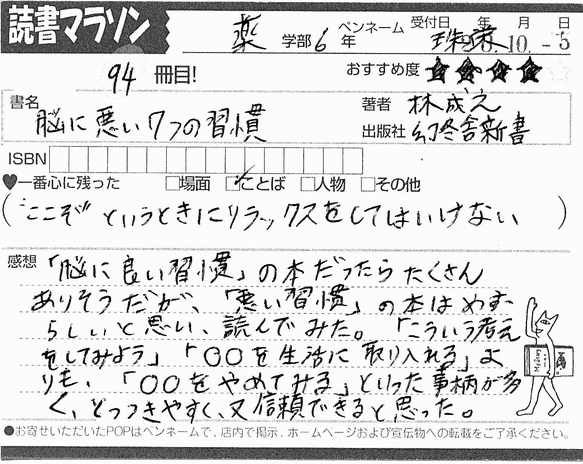 読書マラソン
薬 学部 6 年 ペンネーム 受付日 年 月 日
.10.-5
94 冊目! おすすめ度 ★★★★
書名 脳に悪い7つの習慣
著者 林成之
出版社 幻冬舎新書
ISBN
♥一番心に残った □場面 ☑ことば □人物 □その他
(“ここぞ”というときにリラックスをしてはいけない)
感想 「脳に良い習慣」の本だったらたくさん
ありそうだが、「悪い習慣」の本はめず
らしいと思い、読んでみた。「こういう考え
をしてみよう」「〇〇を生活に取り入れる」よ
りも、「〇〇をやめてみる」といった事柄が多
く、とっつきやすく、又信頼できると思った。
●お寄せいただいたPOPはペンネームで、店内で掲示、ホームページおよび宣伝物への転載をご了承ください。